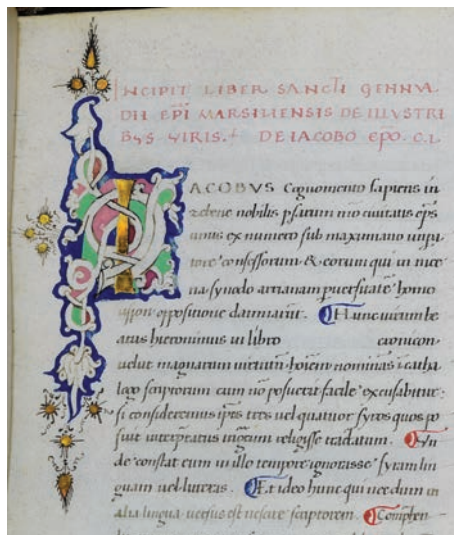 INCIPIT LIBER SANCTI GENNA
DII EPI MARSILIENSIS DE ILLVSTRI
BVS VIRIS. DE IACOBO EPO. C. I.
IACOBVS Cognomento sapiens
nobilis psarum mō ciuitatis eps
unus ex numero sub maximiano
confessorum & eorum qui in nice
na synodo arrianam puersitatē homo
oppositione damnarūt. Hunc uirum be
atus hieronimus in libro cronicon
uelut magnarum uirtutū hoiem nominās i catha
logo scriptorum cum nō posuerit facile excusabitur
si consideremus ipos tres uel quatuor syros quos po
suit interpretatus in grecum religisse tradatum. Vn
de constat eum in illo tempore ignorasse syram lin
guam uel litteras. Et ideo hunc qui necdum in
alia lingua uersus est nescire scriptorem. Comphen